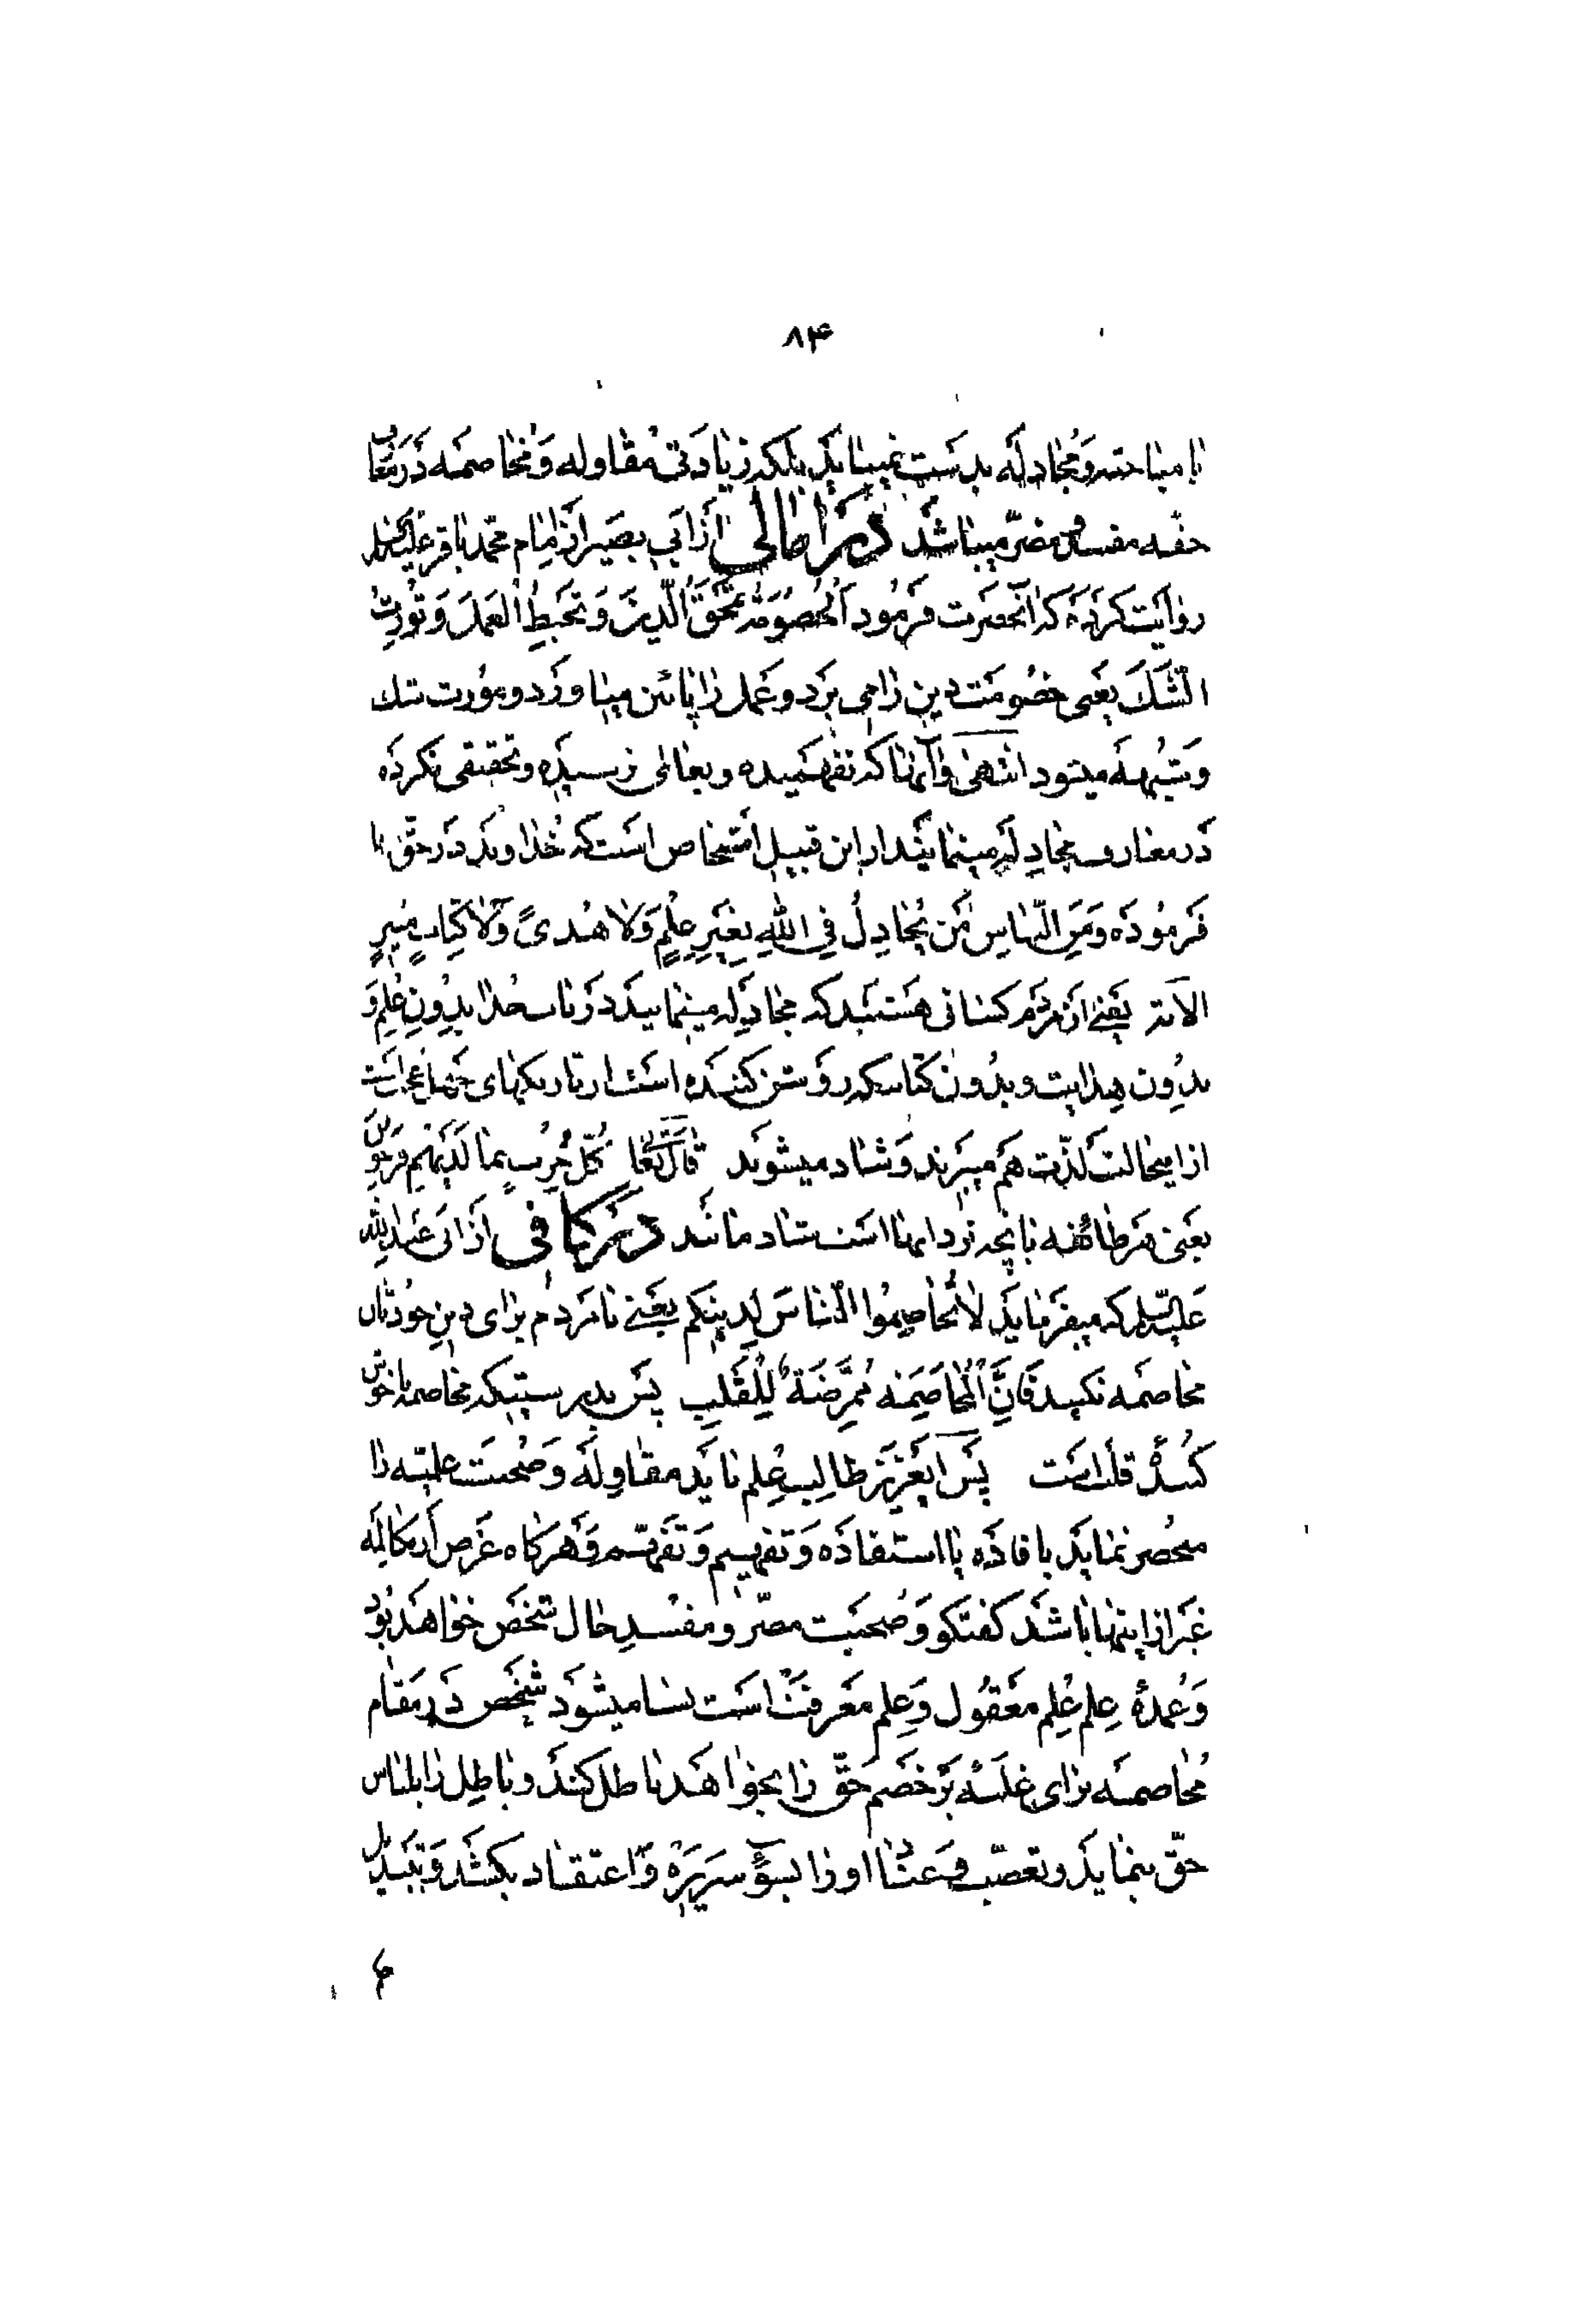 ۸۴
با مباحثه و مُجادلَه بدَست نمیبایَد بلکه زیادَتی مُقاوله وَ مُخاصمَه دَر معارف
حقّه مفسد و مضرّ میباشَد دَر اَمالی از اَبی بصَیر از اِمام محمّد باقر عَلیه السّلام
روایَت کرَدَه که آنحضرَت فرَمُود اَلخُصُومَةُ تَمْحَقُ الدّینَ وَ تُحْبِطُ الْعَمَلَ وَ تُورِثُ
الشَّکَ یَعنی خصُومَت دین را می بَرَد و عَمل را پائین میاورَد و مورّث شک
و شُبهَه میشود انتهی و آنها که نفهَمیده و بمعانی نرسیدَه و تحقیقی نکردَه
دَر معارف مجادِلَه مینمایَند از این قبیل اَشخاص است که خُداوند دَر حقّ آنها
فَرمُودَه وَ مِنَ النّاسِ مَن یُجادِلُ فِی اللّهِ بِغَیرِ عِلْمٍ وَلا هُدیً وَلا کِتابٍ مُنیرٍ
الآیة یَعنی از مَردُم کسانی هَستَند که مجادِله مینمایند دَر باب خدا بدُونِ عِلم وَ
بدُون هِدایت و بدُون کتاب که روَشن کننَده است از تاریکیهای جَهل و عجب است
از اینحالت لذّت هَم میبَرند وَ شاد میشوَند قالَ تَعالی کُلُّ حِزْبٍ بِما لَدَیْهِمْ فَرِحُونَ
یعَنی هَر طائفه بآنچه نزد آنها است شاد مانَند دَر کافی از اَبی عَبدالله
عَلیه السّلام که میفَرمایَد لاتُخاصِمُوا النّاسَ لِدینِکم یعَنی با مَردم برای دینِ خودتان
مخاصمَه نکنید فَاِنَّ الْمُخاصَمَه مُمَرِّضَةٌ لِلْقَلبِ پَس بدرستیکه مخاصمه ناخوش
کُنندَهٔ قلب است پَس ایعَزیز طالِب عِلم بایَد مقاوِلَه وَ صُحبَت علمیّه را
منحصر نمایَد بافادَه یا استفادَه وَ تفهیم وَ تَفهّم وَ هَرگاه غَرض از مکالِمَه
غَیر از اینها باشَد گفتگو وَ صُحبَت مضرّ و مفسدِ حال شخَص خواهَد بُود
وَ عُمدهٔ عِلم عِلم معَقُول وَ عِلم معَرفَت اَست بسا میشوَد شخَص دَر مَقام
مُخاصمَه برای غلَبَه بَر خصَم حَقّ را بخواهَد باطل کنَد و باطِل را بلباس
حقّ بنمایَد و تعصّب وَ عناد او را بسوءِ سَریرَه وَ اعتقاد بکشَد وَ تبَدیل